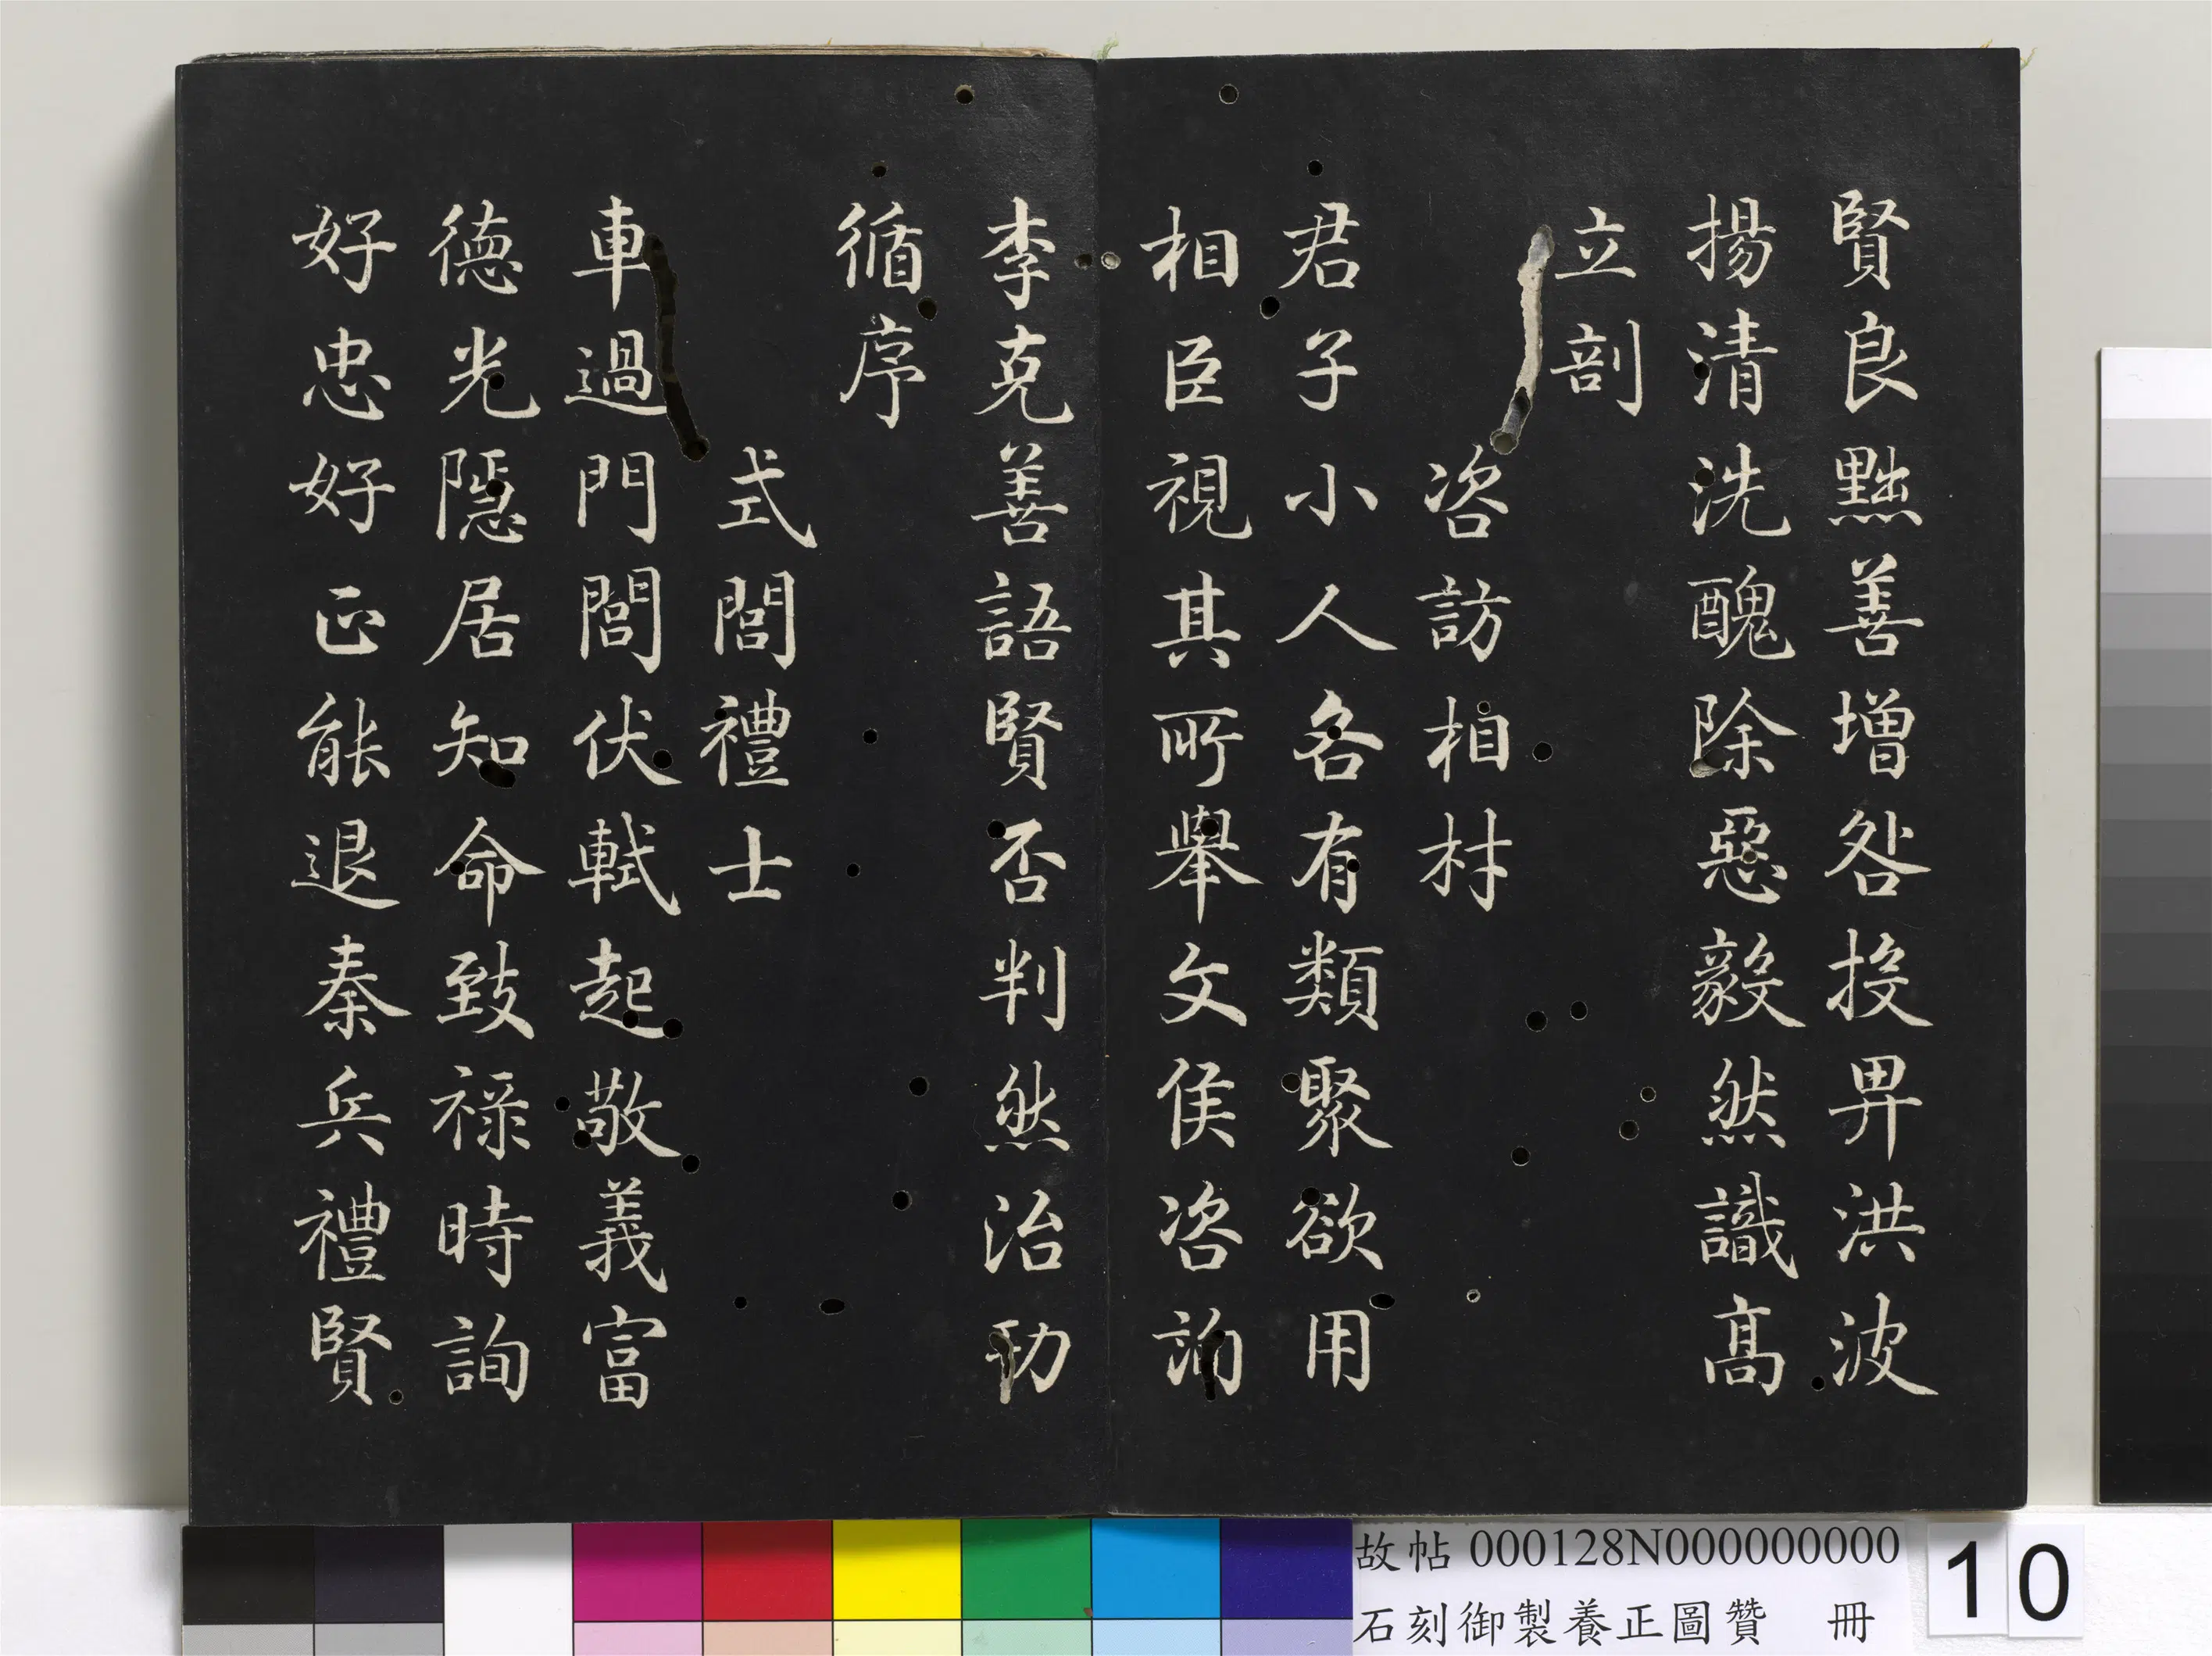 賢良黜善增咎投畀洪波
揚清洗醜除惡毅然識高
立剖
咨訪相材
君子小人各有類聚欲用
相臣視其所舉文侯咨詢
李克善語賢否判然治功
循序
式閭禮士
車過門閭伏軾起敬義富
德光隱居知命致祿時詢
好忠好正能退秦兵禮賢
故帖 000128N000000000
石刻御製養正圖贊 冊
10